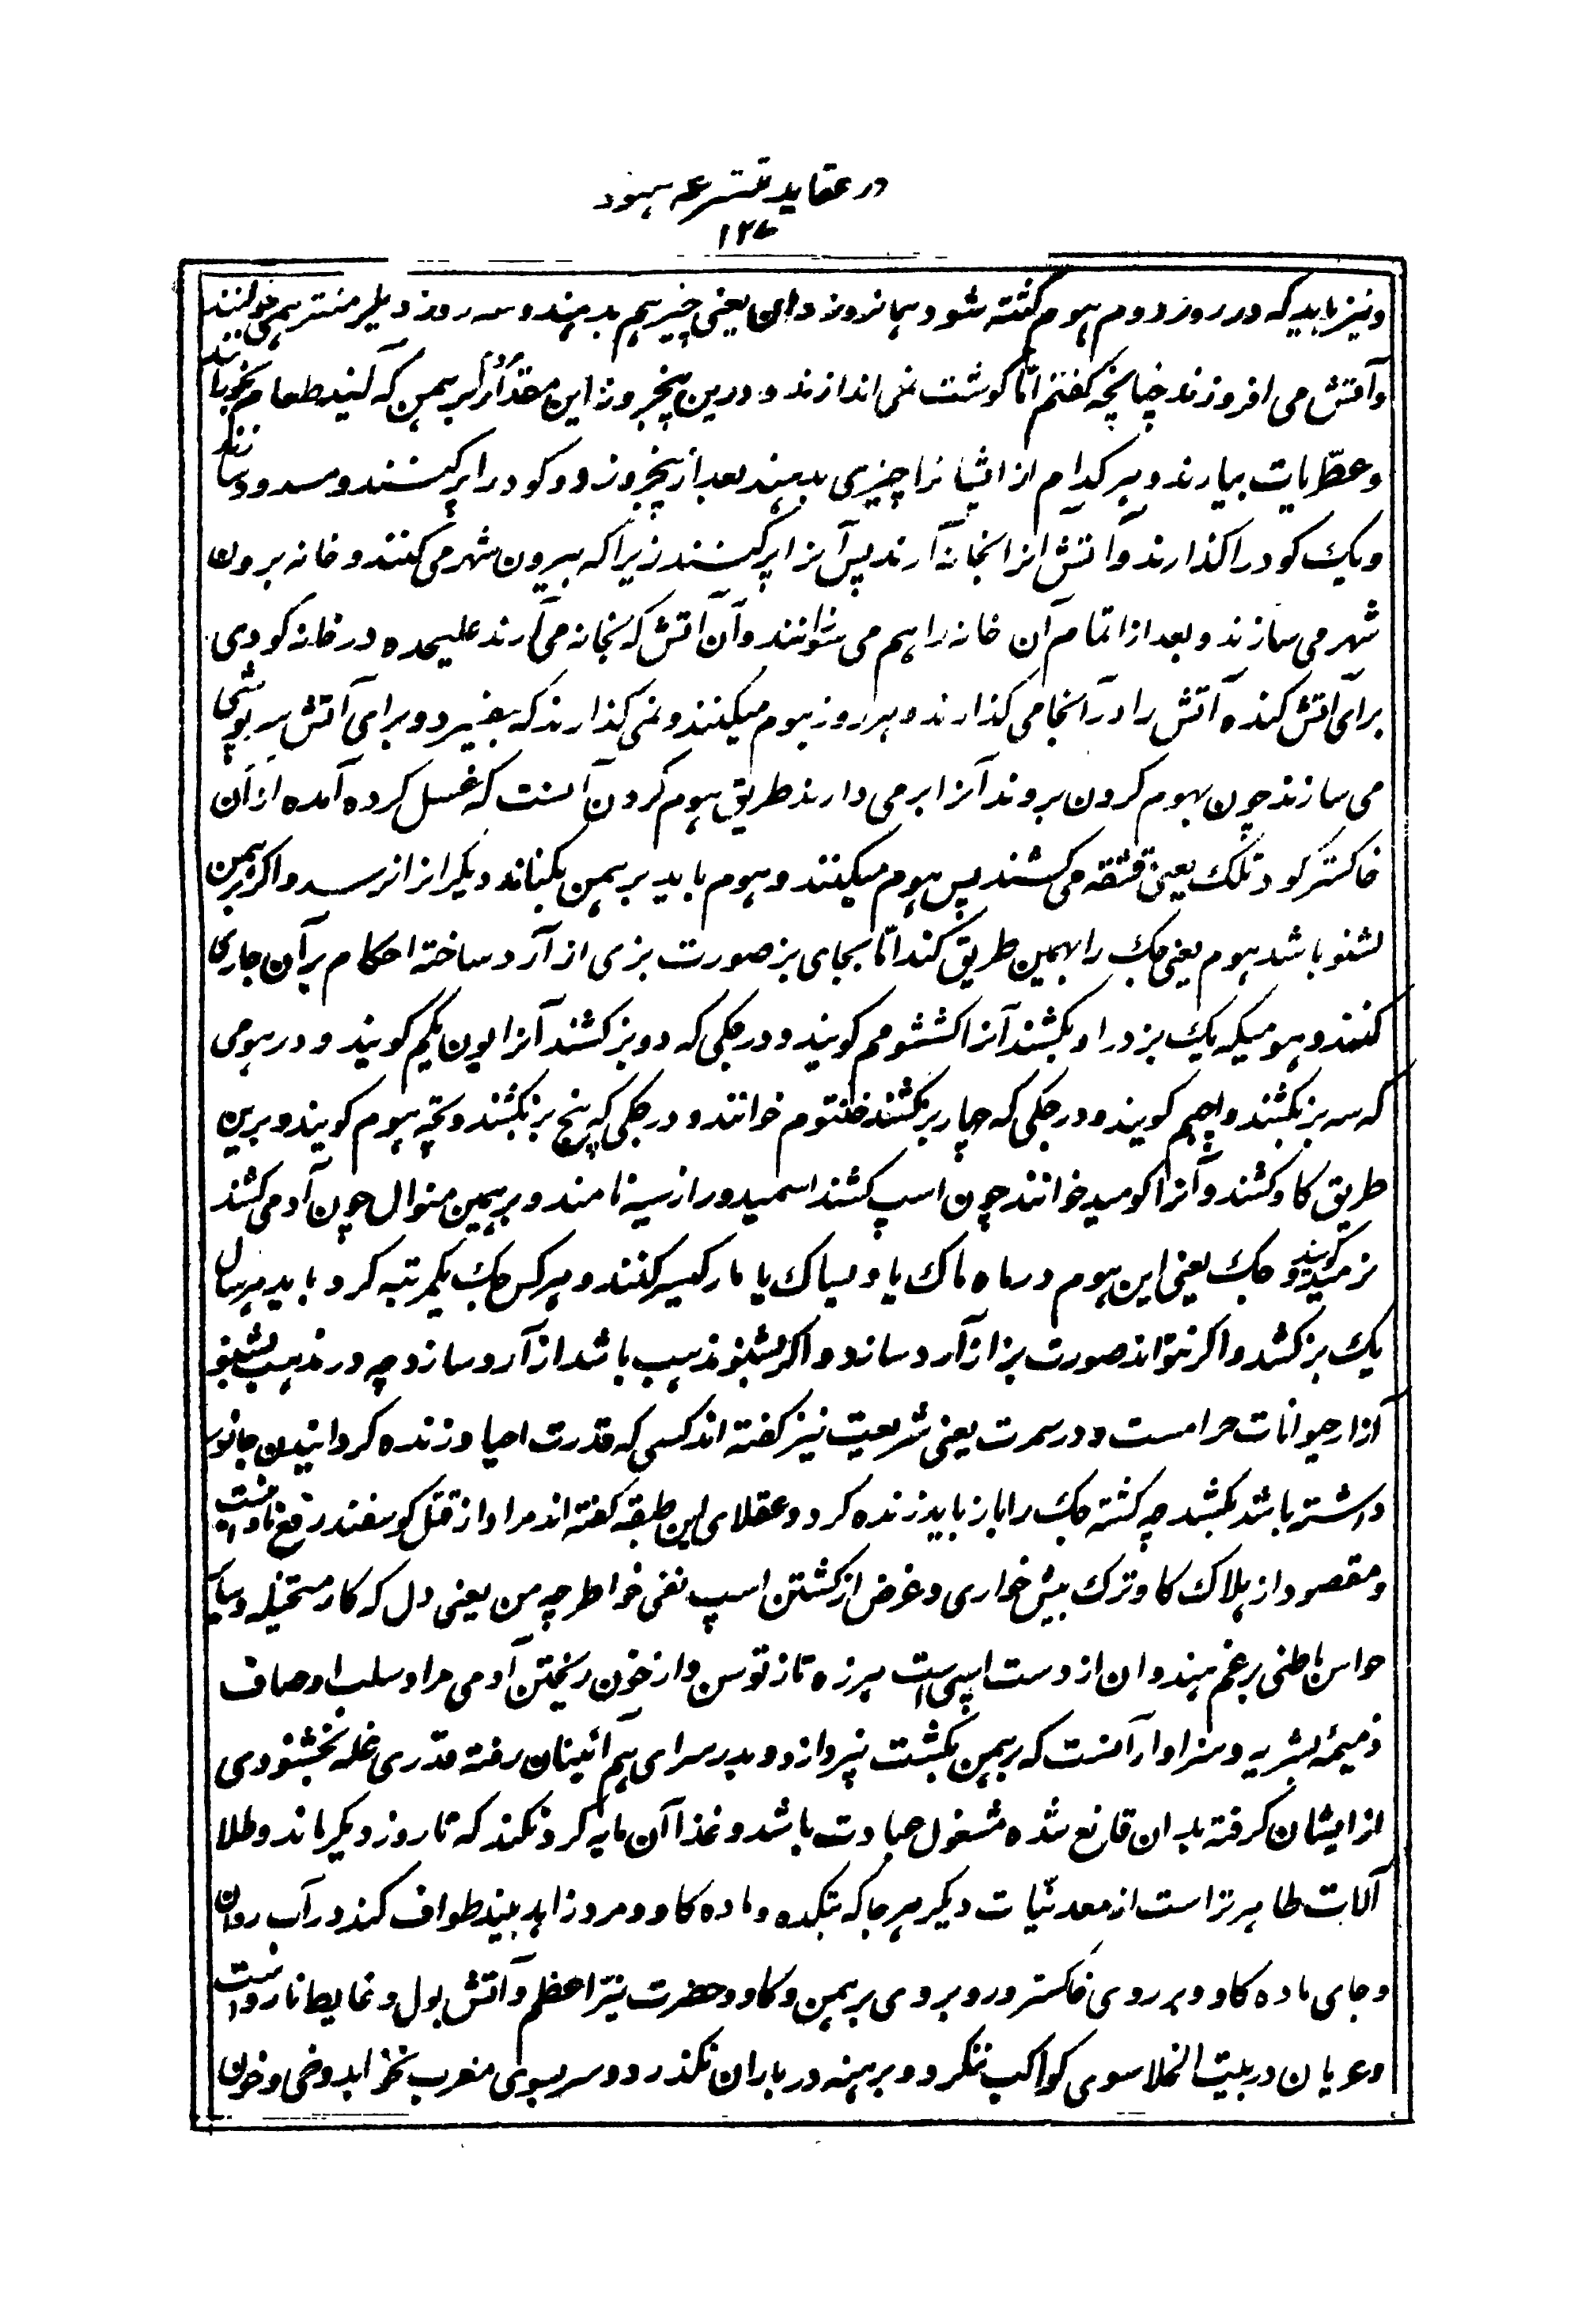 در عقاید متشرعه ہنود
۱۲۷
و نیز باید که در روز دوم ہوم گفته شود ہمانروز دان یعنی چیز ہم بدہند و سه روز دیگر منتر ہمی خوانند
و آتش می افروزند چنانچه گفتم اما گوشت نمی اندازند و درین پنجروز این مقدار مردم برہمن که آیند طعام بخورانند
و عطریات بیارند و ہر کدام از ایشانرا چیزی بدہند بعد از پنجروز دو گودرا پر کنند و مسدود سازند
و یک گودرا گذارند و آتش انرا بخانه آرند پس آنرا پر کنند زیرا که بیرون شہر می کنند و خانه برون
شہر می سازند و بعد از اتمام آن خانه را ہم می سوزانند و آن آتش که بخانه می آرند علیحده در خانه گودی
برای آتش کنده آتش را در آنجا می گذارند و ہر روز ہوم میکنند و نمی گذارند که بمیرد و برای آتش سرپوشی
می سازند چون بہوم کردن بروند آنرا برمی دارند طریق ہوم کردن آنست که غسل کرده آمده از آن
خاکستر گود تلک یعنی قشقه می کشند پس ہوم میکنند و ہوم باید برہمن بکناند دیگرانرا نرسد و اگر برہمن
بشنو باشد ہوم یعنی جگ را بہمین طریق کند اما بجای بز صورت بزی از آرد ساخته احکام بر آن جاری
کنند و ہومیکه یک بز در او بکشند آنرا اکششوم گویند و در جگی که دو بز کشند آنرا پون یگم گویند و در ہومی
که سه بز بکشند واجم گویند و در جگی که چهار بز بکشند خوانند و در جگی که پنج بز بکشند ہوم گویند و برین
طریق گاو کشند و آنرا گومید خوانند چون اسپ کشند اسمید نامند و بر ہمین منوال چون آدمی کشند
نرمید گویند و جگ یعنی این ہوم در ماه ماگ یا وبیساک یا مارکسیر کنند و ہر کس جگ یکمرتبه کرد باید ہر سال
یک بز کشد و اگر نتواند صورت بز از آرد سازد و اگر بشنو مذہب باشد از آرد سازد چه در مذہب بشنو
آزار حیوانات حرامست و در سمرت یعنی شریعت نیز گفته اند کسی که قدرت احیا و زنده گردانیدن جانور
داشته باشد بکشد چه کشته جگ را باز باید زنده کرد و عقلای این طبقه گفته اند مراد از قتل گوسفند رفع نادانیست
و مقصود از ہلاک گاو ترک بیش خواری و غرض از کشتن اسپ نفی خواطر چه من یعنی دل که کار متخیله و سایر
حواس باطنی بر غم ہندوان از دست اسپی است ہرزه تاز توسن و از خون ریختن آدمی مراد سلب اوصاف
ذمیمۀ بشریه و سزاوار آنست که برہمن بکشت نپردازد و بدر سرای ہم آئینان رفته قدری غله بخشنودی
از ایشان گرفته بدان قانع شده مشغول عبادت باشد و غذا آن مایه گرد نکند که تا روز دیگر ماند و طلا
آلات طاہرتر است از معدنیات دیگر ہر جا که بتکده و ماده گاو و مرد زاہد بیند طواف کند در آب روان
و جای ماده گاو و بر روی خاکستر و روبروی برہمن و گاو و حضرت نیر اعظم و آتش بول و غایط نارواست
و عریان در بیت الخلا سوی کواکب ننگرد و برہنه در باران نگذرد و سر بسوی مغرب نخوابد و خون